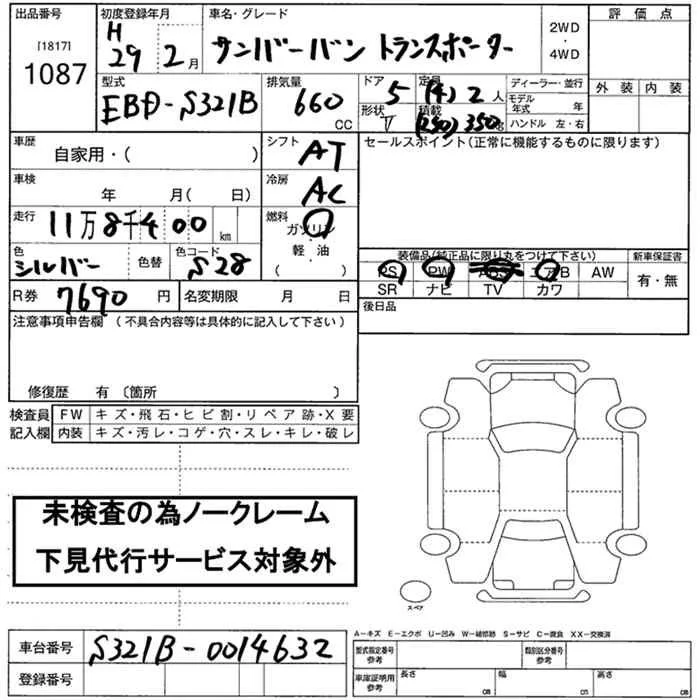 出品番号 初度登録年月 車名・グレード 評価点
[1817] H 2WD
1087 29 2月 サンバーバン トランスポーター ・
4WD
型式 排気量 ドア 定員 ディーラー・並行 外装 内装
EBD-S321B 660 CC 5 (4) 2人 モデル年式 年
形状 V 積載 (250) 350kg ハンドル 左・右
車歴 シフト セールスポイント(正常に機能するものに限ります)
自家用・( ) AT
車検 冷房
年 月(日) AC
走行 燃料
11万8千400km ガソリン
色 色替 色コード 軽・油 装備品(純正品に限り丸をつけて下さい) 新車保証書
シルバー S28 ( ) PS PW ABS エアB AW 有・無
R券 7690円 名変期限 月 日 SR ナビ TV カワ
注意事項申告欄(不具合内容等は具体的に記入して下さい) 後日品
修復歴 有〔箇所 〕
検査員 FW キズ・飛石・ヒビ割・リペア跡・X要
記入欄 内装 キズ・汚レ・コゲ・穴・スレ・キレ・破レ
未検査の為ノークレーム
下見代行サービス対象外
スペア
A-キズ E-エクボ U-凹み W-補修跡 S-サビ C-腐食 XX-交換済
車台番号 S321B-0014632 型式指定番号 参考 類別区分番号 参考
登録番号 車庫証明用 参考 長さ cm 幅 cm 高さ cm